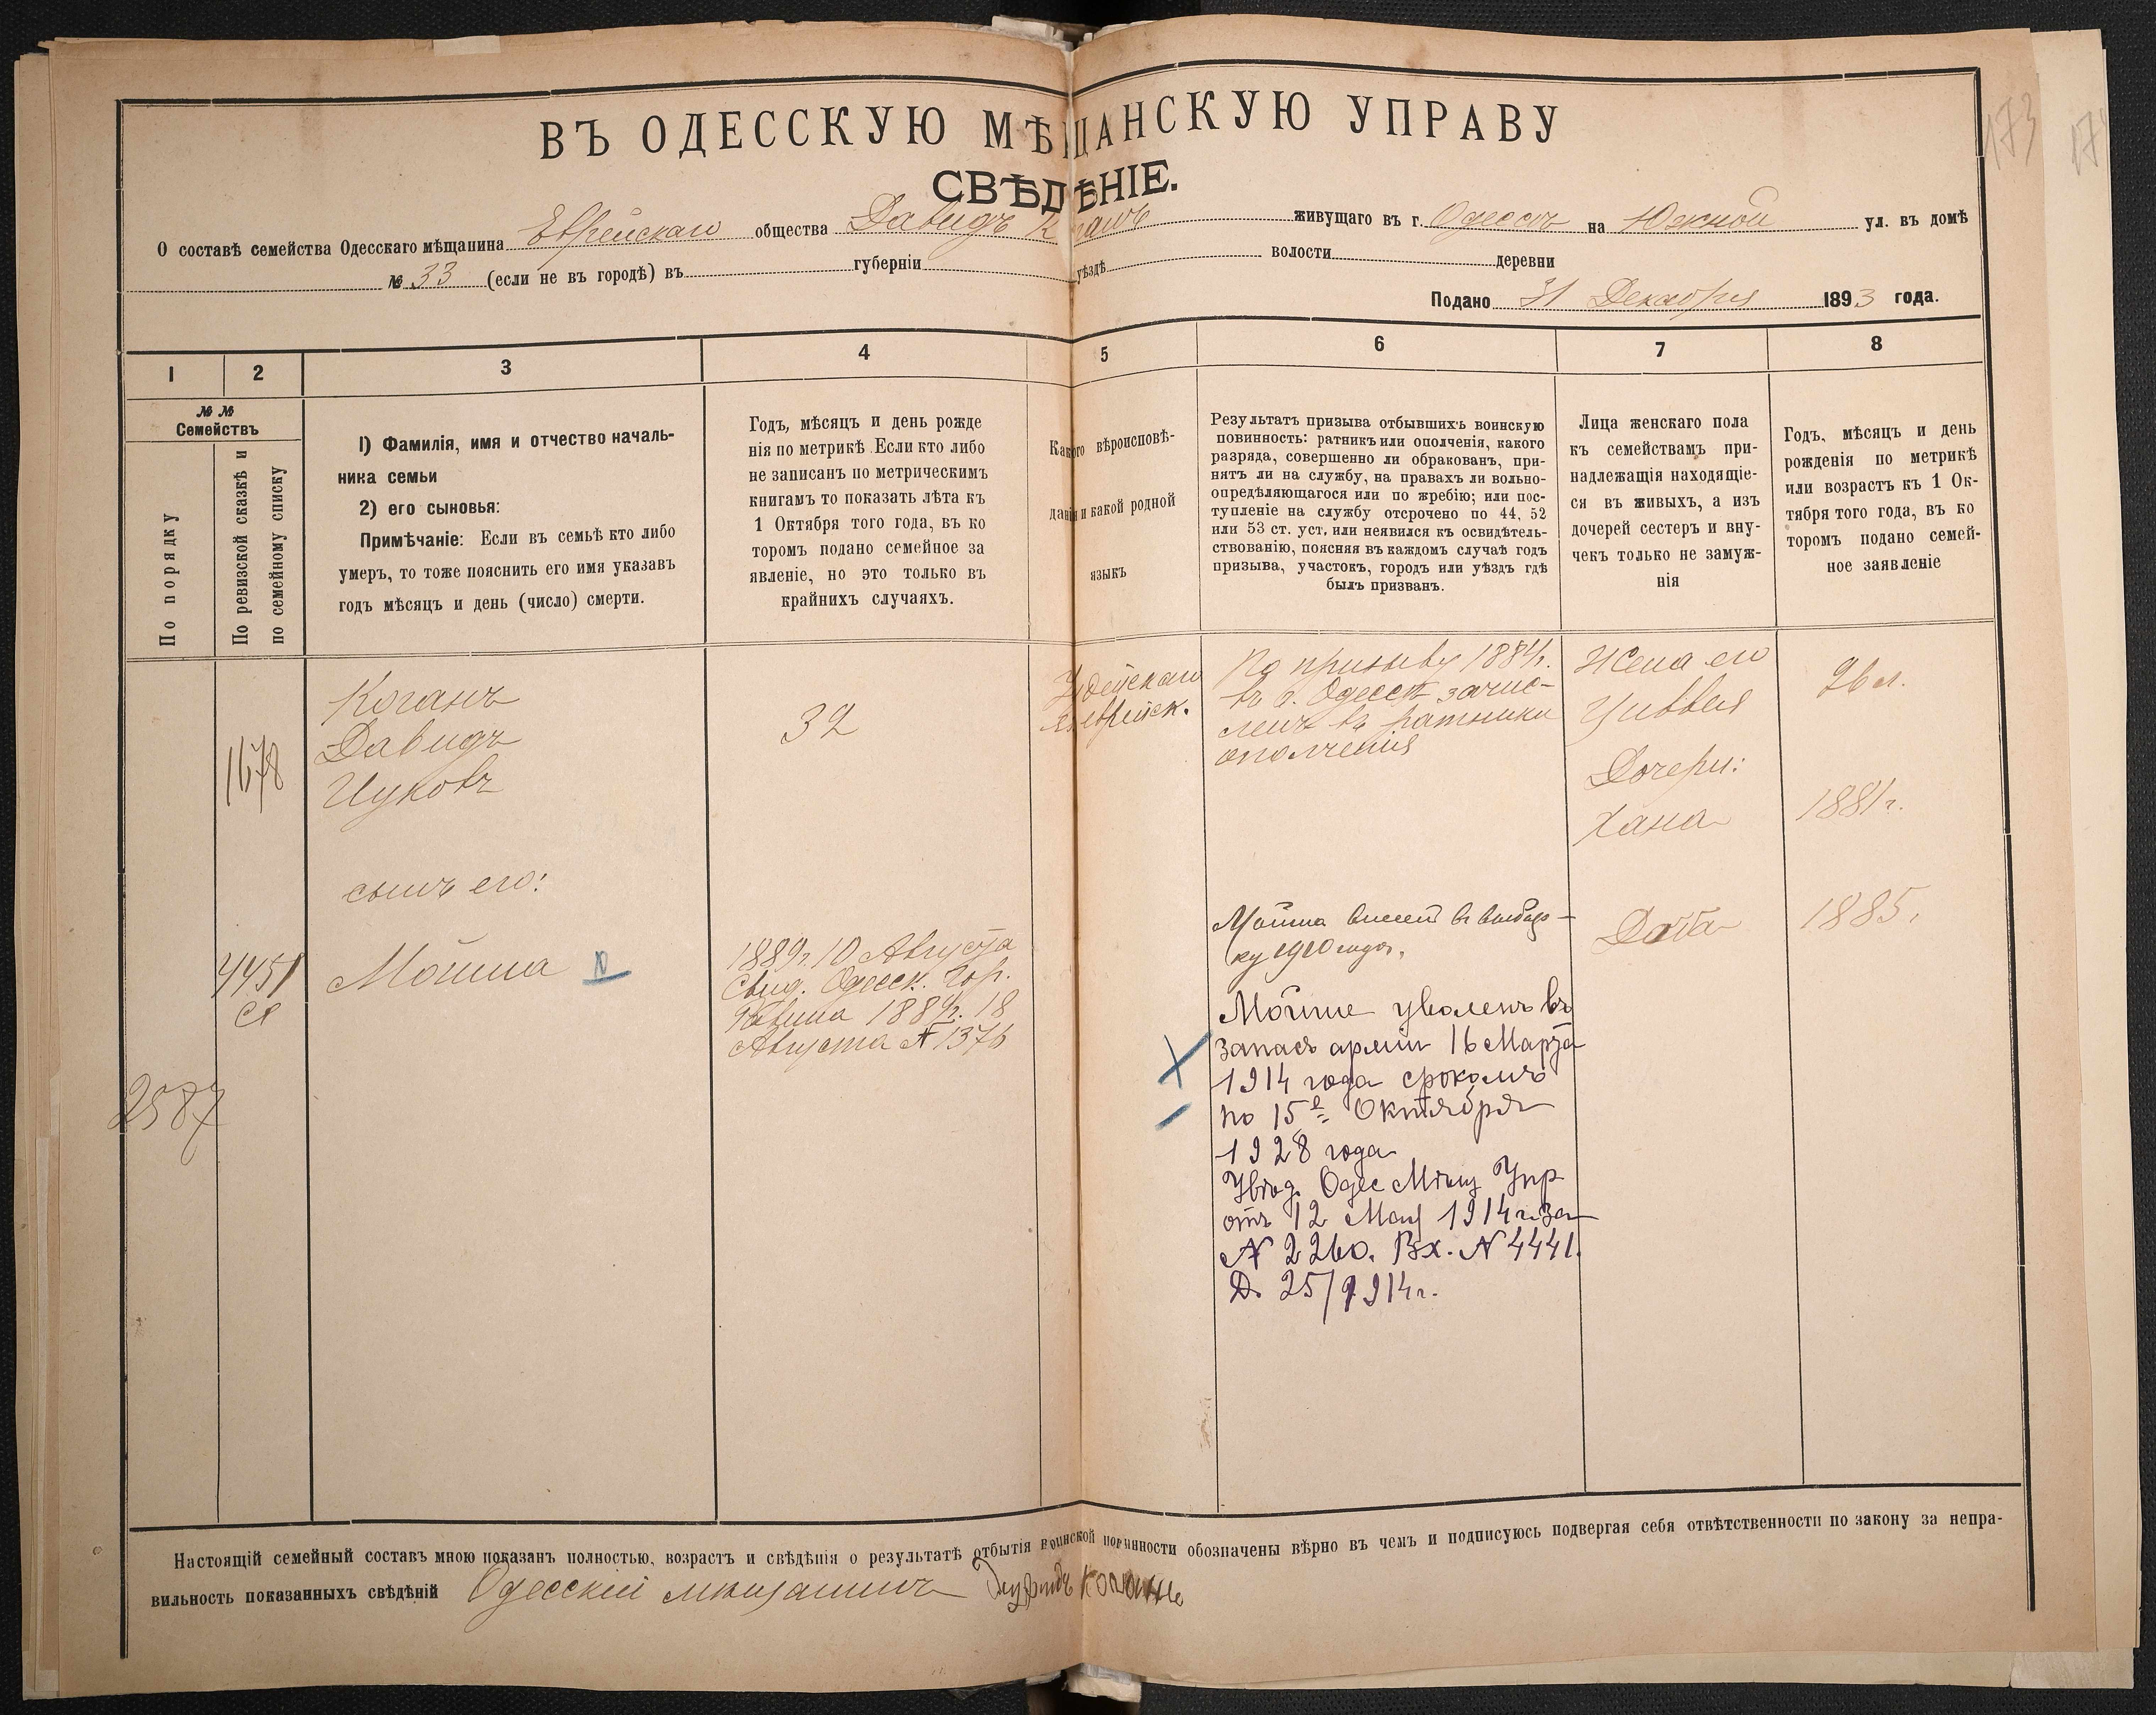 173
ВЪ ОДЕССКУЮ МѢЩАНСКУЮ УПРАВУ
СВѢДѢНІЕ.
О составѣ семейства Одесскаго мѣщанина Еврейскаго общества Давидъ Коганъ живущаго въ г. Одессѣ на Южной ул. въ домѣ
№ 33 (если не въ городѣ) въ губерніи уѣздѣ волости деревни
Подано 31 Декабря 1893 года.
1 2 3 4 5 6 7 8
№ №
Семействъ
По порядку
По ревизской сказкѣ и
по семейному списку
1) Фамилія, имя и отчество началь-
ника семьи
2) его сыновья:
Примѣчаніе: Если въ семьѣ кто либо
умеръ, то тоже пояснить его имя указавъ
годъ мѣсяцъ и день (число) смерти.
Годъ, мѣсяцъ и день рожде
нія по метрикѣ. Если кто либо
не записанъ по метрическимъ
книгамъ то показать лѣта къ
1 Октября того года, въ ко
торомъ подано семейное за
явленіе, но это только въ
крайнихъ случаяхъ.
Какого вѣроисповѣ-
данія и какой родной
языкъ
Результатъ призыва отбывшихъ воинскую
повинность: ратникъ или ополченія, какого
разряда, совершенно ли обракованъ, при-
нятъ ли на службу, на правахъ ли вольно-
опредѣляющагося или по жребію; или пос-
тупленіе на службу отсрочено по 44, 52
или 53 ст. уст. или неявился къ освидѣтель-
ствованію, поясняя въ каждомъ случаѣ годъ
призыва, участокъ, городъ или уѣздъ гдѣ
былъ призванъ.
Лица женскаго пола
къ семействамъ при-
надлежащія находящіе-
ся въ живыхъ, а изъ
дочерей сестеръ и вну-
чекъ только не замуж-
нія
Годъ, мѣсяцъ и день
рожденія по метрикѣ
или возрастъ къ 1 Ок-
тября того года, въ ко
торомъ подано семей-
ное заявленіе
1678
Коганъ
Давидъ
Ицковъ
32
Іудейскаго
еврейск.
По призыву 1884г.
въ г. Одессѣ зачис-
ленъ въ ратники
ополченія
Жена его
Цивья
26 л.
Дочери:
Хана
1881г.
сынъ его:
4451
Мойша
1889г. 10 Августа
Свид. Одесск. Гор.
Равина 1889г. 18
Августа № 1376
2587
Мойша внесенъ въ
1910 года.
Мойше уволенъ въ
запасъ арміи 16 Марта
1914 года срокомъ
по 15е Октября
1928 года
Увѣд. Одес Мѣщ Упр
отъ 12 Мая 1914г. за
№ 2260. Вх. № 4441.
Д. 25/1914г.
1885.
Настоящій семейный составъ мною показанъ полностью, возрастъ и свѣдѣнія о результатѣ отбытія воинской повинности обозначены вѣрно въ чемъ и подписуюсь подвергая себя отвѣтственности по закону за непра-
вильность показанныхъ свѣдѣній Одесскій мѣщанинъ Давидъ Коганъ